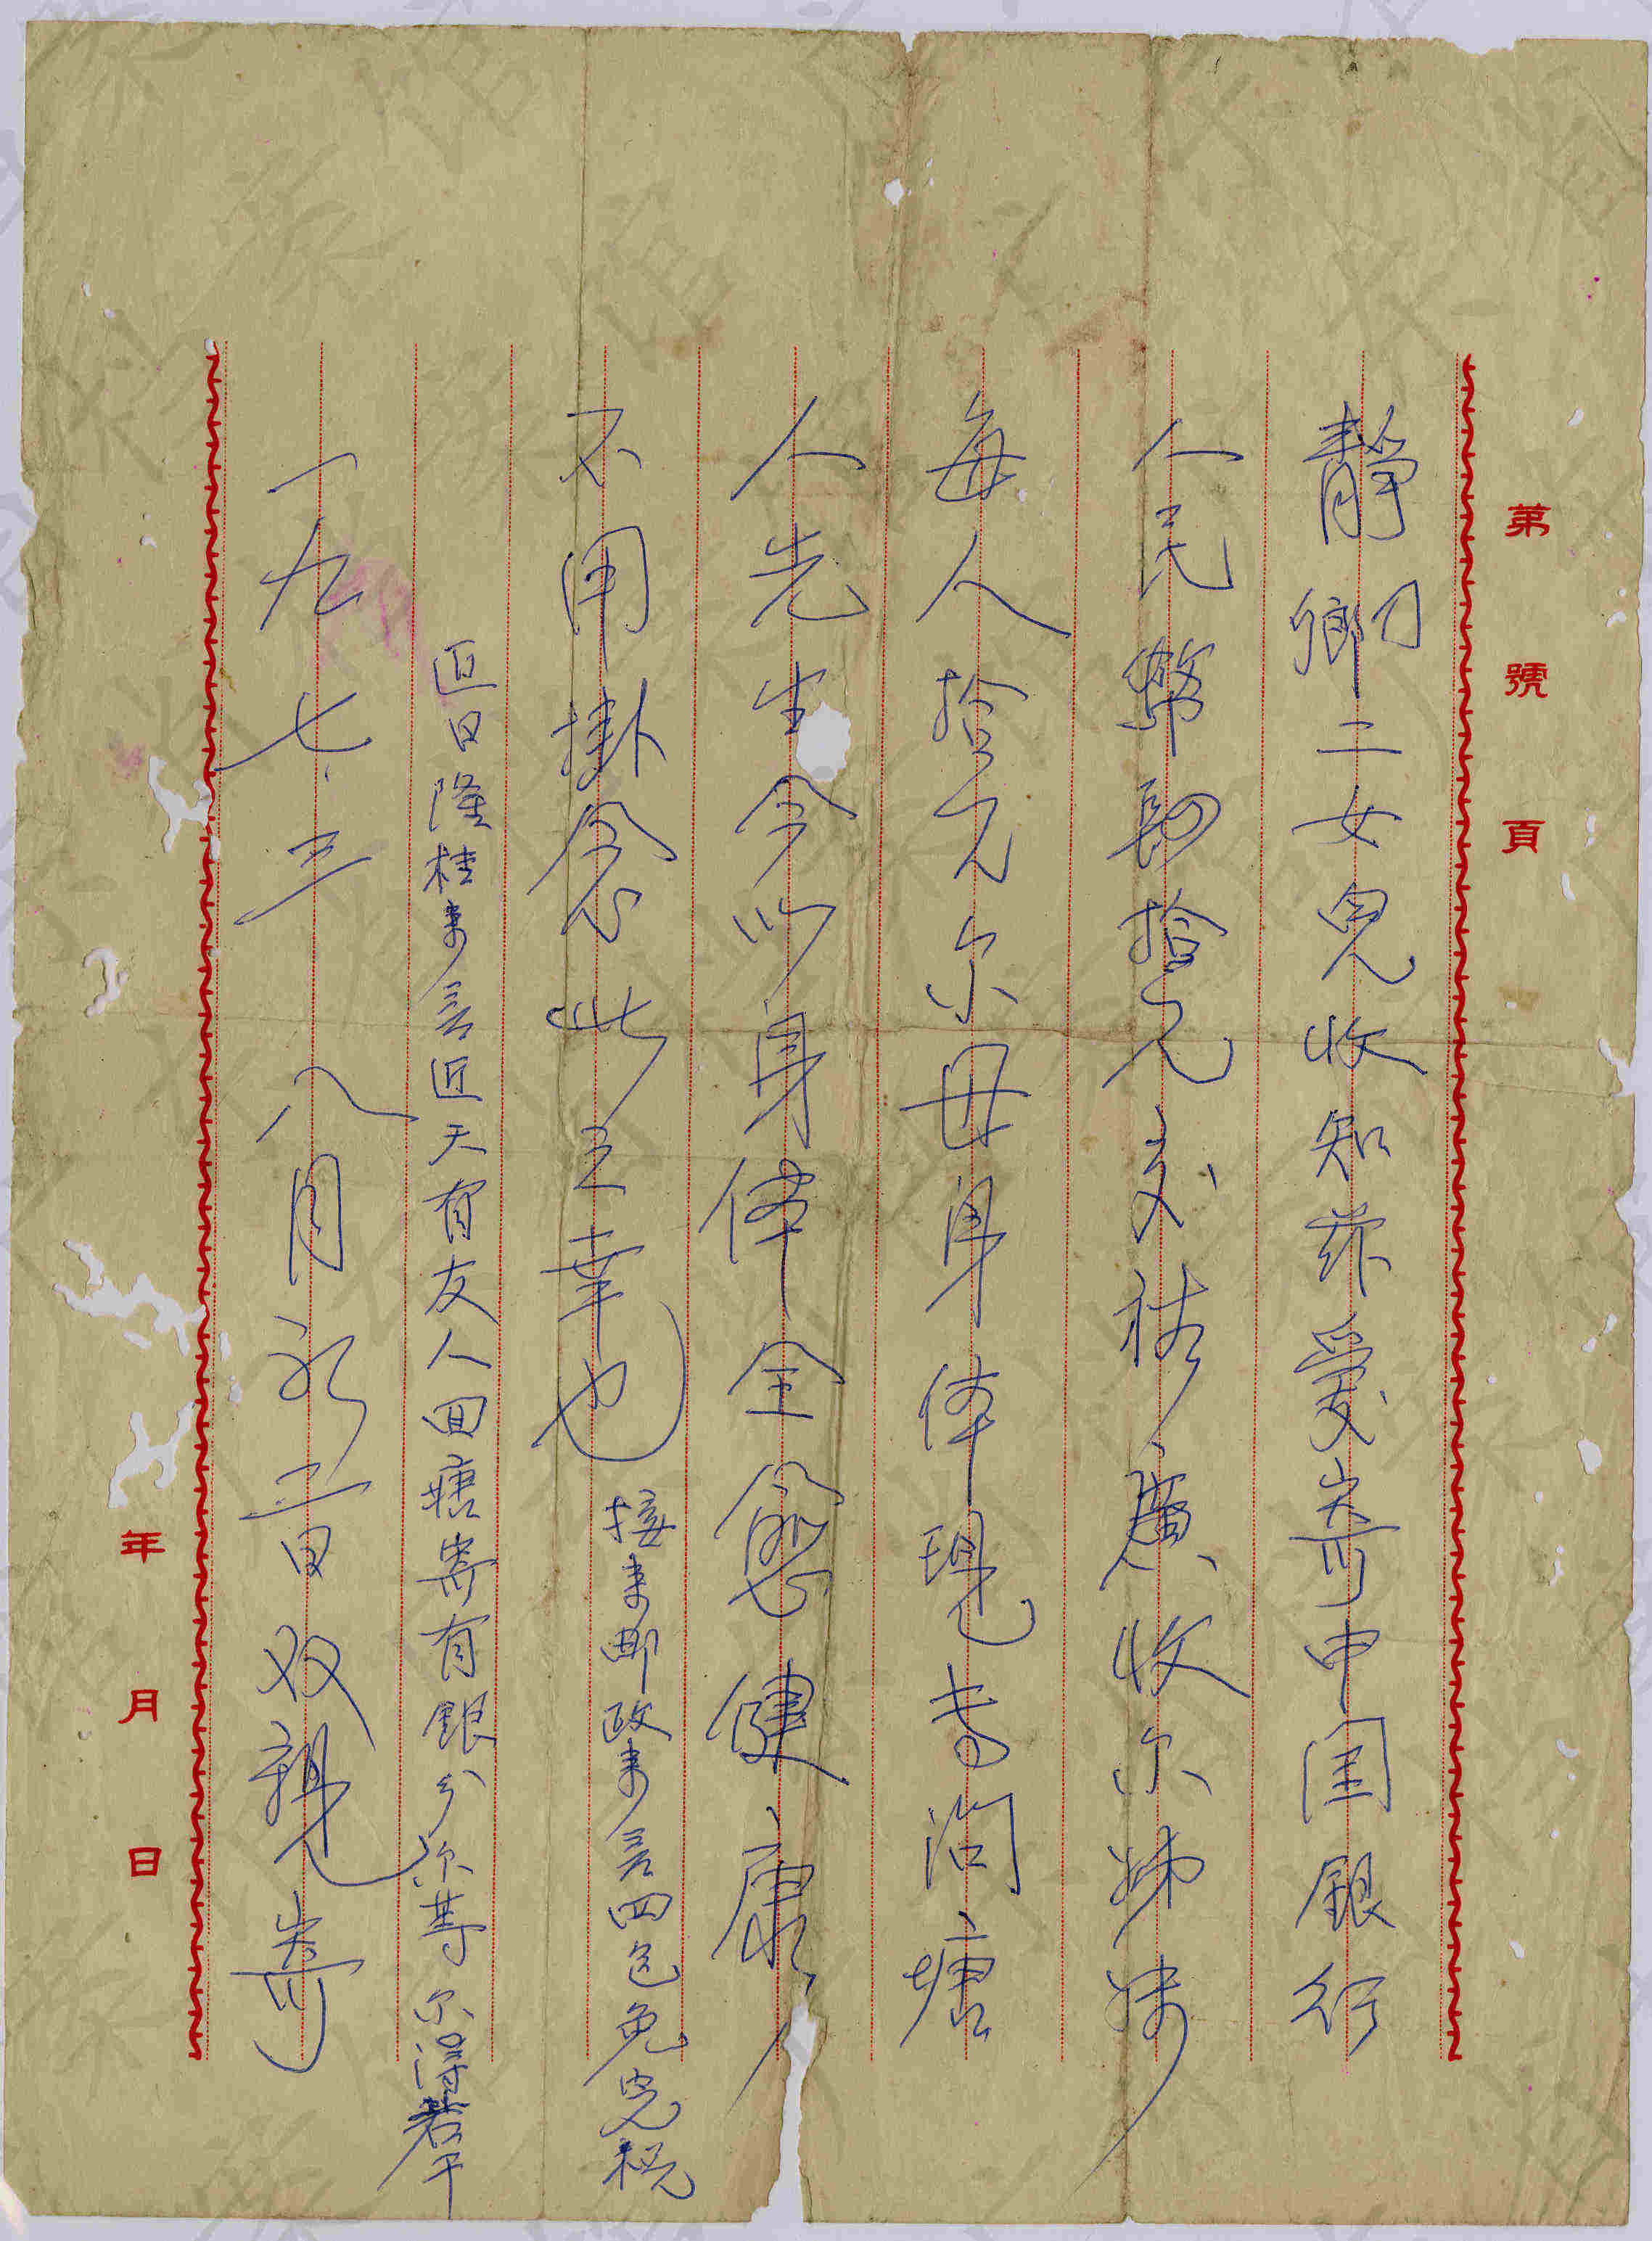 第 號 頁
靜卿二女兒收知茲愛寄中国銀行
人民幣 拾元交 廣收尔姊妹
每人拾元尔母身体現 问塘
人先生今以身体全愈健康
不用掛念此之幸也
接来邮政来言四包免完税
近日隆桂来言近天有友人回塘寄有銀分尔等尔得若干
一九七三 八月初二日双親寄
年 月 日